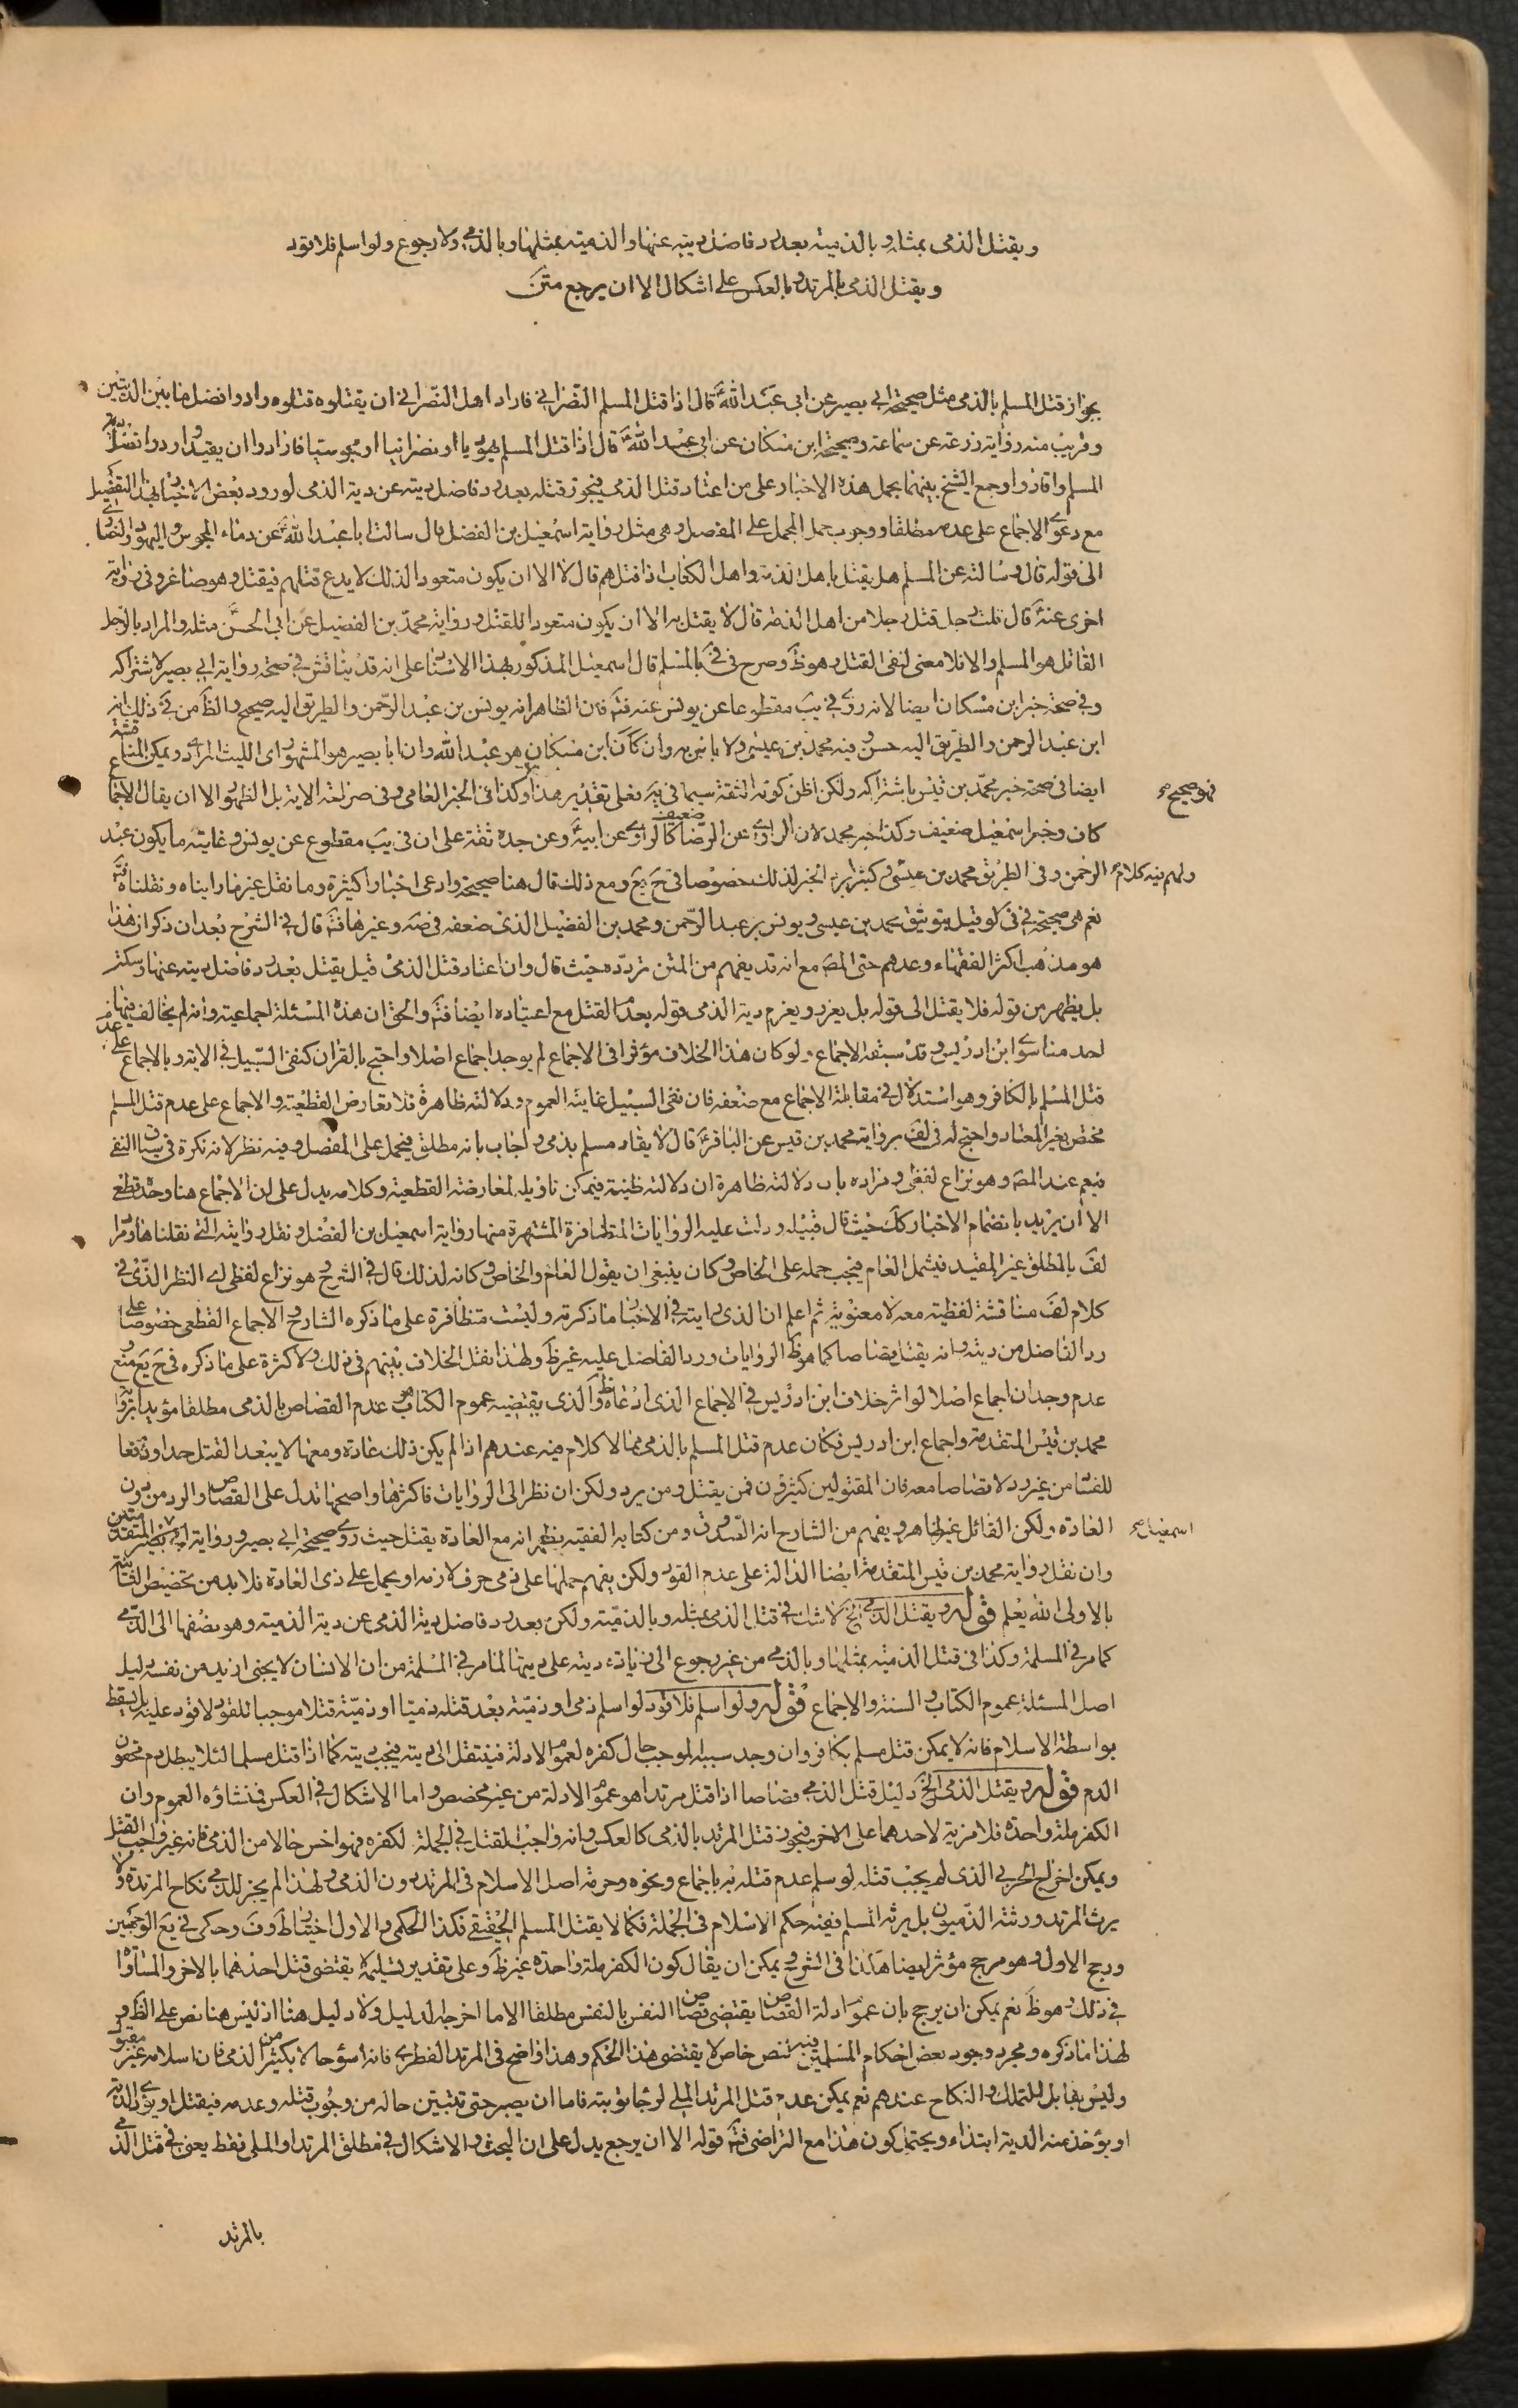 ويقتل الذمي بمثله وبالذمية بعد رد فاضل ديته عنها والذمية بمثلها وبالذمي ولا رجوع ولو اسلم فلا قود
ويقتل الذمي بالمرتد وبالعكس على اشكال الا ان يرجع متن
بجواز قتل المسلم بالذمي مثل صحيحة ابي بصير عن ابي عبد الله ع قال اذا قتل المسلم النصراني فاراد اهل النصراني ان يقتلوه قتلوه وادوا فضل ما بين الديتين
وقريب منه رواية زرعة عن سماعة وصحيحة ابن مسكان عن ابي عبد الله ع قال اذا قتل المسلم يهوديا او نصرانيا او مجوسيا فارادوا ان يقيدوا ردوا فضل دية
المسلم واقادوا وجمع الشيخ بينهما بحمل هذه الاخبار على من اعتاد قتل الذمي فيجوز قتله بعد رد فاضل ديته عن دية الذمي لورود بعض الاخبار بهذا التفصيل
مع دعوى الاجماع على عدمه مطلقا ووجوب حمل المجمل على المفصل وهي مثل رواية اسمعيل بن الفضل قال سالت ابا عبد الله ع عن دماء المجوس واليهود والنصارى
الى قوله قال وسالته عن المسلم هل يقتل باهل الذمة واهل الكتاب اذا قتلهم قال لا الا ان يكون متعودا لذلك لا يدع قتلهم فيقتل وهو صاغر وفي رواية
اخرى عنه ع قال قلت رجل قتل رجلا من اهل الذمة قال لا يقتل به الا ان يكون متعودا للقتل ورواية محمد بن الفضيل عن ابي الحسن ع مثله والمراد بالرجل
القاتل هو المسلم والا فلا معنى لنفي القتل وهو ظ وصرح في في بالمسلم قال اسمعيل المذكور بهذا الاسناد على انه قد يناقش في صحة رواية ابي بصير لاشتراكه
وفي صحة خبر ابن مسكان ايضا لانه روى في يب مقطوعا عن يونس عنه فتم فان الظاهر انه يونس بن عبد الرحمن والطريق اليه صحيح والظ من في ذلك انه
ابن عبد الرحمن والطريق اليه حسن وفيه محمد بن عيسى ولا باس به وان كان ابن مسكان هو عبد الله وان ابا بصير هو المشهور اي الليث المرادي ويمكن المناقشة
ايضا في صحة خبر محمد بن قيس باشتراكه ولكن اظن كونه الثقة سيما في يه فعلى تقديره هذا وكذا في الخبر العامي وفي صراحة الاية بل الظهور الا ان يقال الاجماع
فهو صحيح
كان وخبر اسمعيل ضعيف وكذا خبر محمد لان الراوي عن الرضا ع كالراوي ضعيف عن ابيه ع وعن جده ثقة على ان في يب مقطوع عن يونس وغايته ما يكون عبد
الرحمن وفي الطريق محمد بن عيسى وكثيرا يرد الخبر لذلك خصوصا في ح يع ومع ذلك قال هنا صحيحة وادعى اخبارا كثيرة وما نقل غيرها وما رايناه ونقلناه فتم
ولهم فيه كلام
نعم هي صحيحة في في لو قيل بتوثيق محمد بن عيسى ويونس بن عبد الرحمن ومحمد بن الفضيل الذي ضعفه في صه وغيرها فتم قال في الشرح بعد ان ذكر ان هذا
هو مذهب اكثر الفقهاء وعدهم حتى المص مع انه قد يفهم من المتن تردده حيث قال وان اعتاد قتل الذمي قيل يقتل بعد رد فاضل ديته عنها وسكت
بل يظهر من قوله فلا يقتل الى قوله بل يعزر ويغرم دية الذمي قوله بعدم القتل مع اعتياده ايضا فتم والحق ان هذه المسئلة اجماعية وانه لم يخالف فيها
احد منا سوى ابن ادريس وقد سبقه الاجماع ولو كان هذا الخلاف مؤثرا في الاجماع لم يوجد اجماع اصلا واحتج بالقران كنفي السبيل في الاية وبالاجماع على عدم
قتل المسلم بالكافر وهو استدلال في مقابلة الاجماع مع ضعفه فان نفي السبيل غايته العموم ودلالته ظاهرة فلا تعارض القطعية والاجماع على عدم قتل المسلم
مختص بغير المعتاد واحتج له في لف برواية محمد بن قيس عن الباقر ع قال لا يقاد مسلم بذمي واجاب بانه مطلق فيحمل على المفصل وفيه نظر لانه نكرة في سياق النفي
فيعم عند المص وهو نزاع لفظي ومراده بان دلالته ظاهرة ان دلالته ظنية فيمكن تاويله لمعارضة القطعية وكلامه يدل على ان الاجماع هنا وحده قطعي
الا ان يريد بانضمام الاخبار كك حيث قال قبيله ودلت عليه الروايات المتظافرة المشتهرة منها رواية اسمعيل بن الفضل ونقل روايته التي نقلناها ومراد
لف بالمطلق غير المقيد فيشمل العام فيجب حمله على الخاص وكان ينبغي ان يقول العام والخاص وكانه لذلك قال في الشرح وهو نزاع لفظي اي النظر الذي في
كلام لف مناقشة لفظية معه لا معنوية ثم اعلم ان الذي رايته في الاخبار ما ذكرته وليست متظافرة على ما ذكره الشارح والاجماع القطعي خصوصا على
رد الفاضل من ديته وانه يقتل قصاصا كما هو ظ الروايات ورد الفاضل عليه غير ظ ولهذا نقل الخلاف بينهم في ذلك ولا كثرة على ما ذكره في ح يع ومنع
عدم وجدان اجماع اصلا لو اثر خلاف ابن ادريس في الاجماع الذي ادعاه ظ والذي يقتضيه عموم الكتاب هو عدم القصاص بالذمي مطلقا مؤيدا برواية
محمد بن قيس المتقدمة واجماع ابن ادريس فكان عدم قتل المسلم بالذمي مما لا كلام فيه عندهم اذا لم يكن ذلك عادة ومعها لا يبعد القتل حدا ودفعا
للفساد من غير رد لا قصاصا معه فان المقتولين كثيرون فمن يقتل ومن يرد ولكن ان نظر الى الروايات فاكثرها واصحها تدل على القصاص والرد من دون
العادة ولكن القائل غير ظاهر ويفهم من الشارح انه الصدوق ومن كتابه الفقيه يظهر انه مع العادة يقتل حيث روى صحيحة ابي بصير ورواية ابي بصير المتقدمتين
اسمعيل
وان نقل رواية محمد بن قيس المتقدمة ايضا الدالة على عدم القود ولكن يفهم حملها على ذمي خرق لازمه او يحمل على ذي العادة فلا بد من تخصيص القتل
بالاولى الله يعلم قوله ويقتل الذمي الخ لا شك في قتل الذمي بمثله وبالذمية ولكن بعد رد فاضل دية الذمي عن دية الذمية وهو نصفها الى الذمي
كما مر في المسلمة وكذا في قتل الذمية بمثلها وبالذمي من غير رجوع الى زيادة ديته على ديتها لما مر في المسلمة من ان الانسان لا يجني ازيد من نفسه دليل
اصل المسئلة عموم الكتاب والسنة والاجماع قوله ولو اسلم فلا قود لو اسلم ذمي او ذمية بعد قتله ذميا او ذمية قتلا موجبا للقود لا قود عليه بل يسقط
بواسطة الاسلام فانه لا يمكن قتل مسلم بكافر وان وجد سببه الموجب حال كفره لعموم الادلة فينتقل الى ديته فيجب ديته كما اذا قتل مسلما لئلا يبطل دم محقون
الدم قوله ويقتل الذمي الخ دليل قتل الذمي قصاصا اذا قتل مرتدا هو عموم الادلة من غير مخصص واما الاشكال في العكس فمنشاؤه العموم وان
الكفر ملة واحدة فلا مزية لاحدهما على الاخر فيجوز قتل المرتد بالذمي كالعكس وانه واجب القتل في الجملة لكفره فهو اخس حالا من الذمي فانه غير واجب القتل
ويمكن اخراج الحربي الذي لم يجب قتله لو سلم عدم قتله به باجماع ونحوه وحرمة اصل الاسلام في المرتد دون الذمي ولهذا لم يجز للذمي نكاح المرتدة ولا
يرث المرتد ورثته الذميون بل يرثه المسلم ففيه حكم الاسلام في الجملة فكما لا يقتل المسلم الحقيقي فكذا الحكمي والاول اختيار ط وف وحكى في يع الوجهين
ورجح الاول وهو مرجح مؤثر ايضا هكذا في الشرح ويمكن ان يقال كون الكفر ملة واحدة غير ظ وعلى تقدير تسليمه لا يقتضي قتل احدهما بالاخر والمساواة
في ذلك وهو ظ نعم يمكن ان يرجح بان عموم ادلة القصاص يقتضي قصاص النفس بالنفس مطلقا الا ما اخرجه الدليل ولا دليل هنا اذ ليس هنا نص على الظهور
لهذا ما ذكره ومجرد وجود بعض احكام المسلمين فيه بنص خاص لا يقتضي هذا الحكم وهذا واضح في المرتد الفطري فانه اسوء حالا بكثير من الذمي فان اسلامه غير مقبول
وليس بقابل للتملك والنكاح عندهم نعم يمكن عدم قتل المرتد الملي لرجا توبته فاما ان يصبر حتى تتبين حاله من وجوب قتله وعدمه فيقتل او يؤدي الدية
او يؤخذ منه الدية ابتداء ويحتمل كون هذا مع التراضي فتم قوله الا ان يرجع يدل على ان البحث والاشكال في مطلق المرتد او الملي فقط يعني في قتل الذمي
بالمرتد